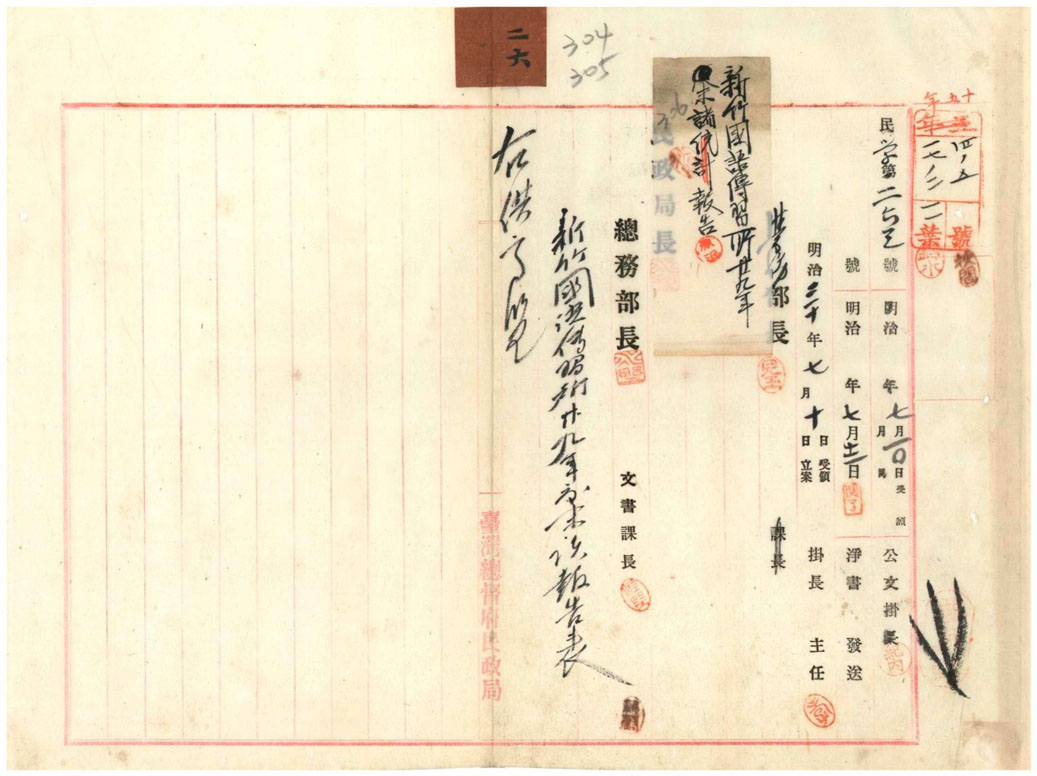 二六
304
305
十五年
四ノ五
一七ノ二
號
一一葉
民 学 第二七三號 明治 年 七月 一〇日 受領 公文掛長
號 明治 年 七月 十二日 淨書 發送
明治 三十 年 七 月 十 日 受領
日 立案 掛長 主任
学務部長 課長
新竹國語傳習所廿九年
度末諸統計報告
306
民政局長
總務部長 文書課長
新竹國語傳習所廿九年度末諸報告表
右供高覧
臺灣總督府民政局